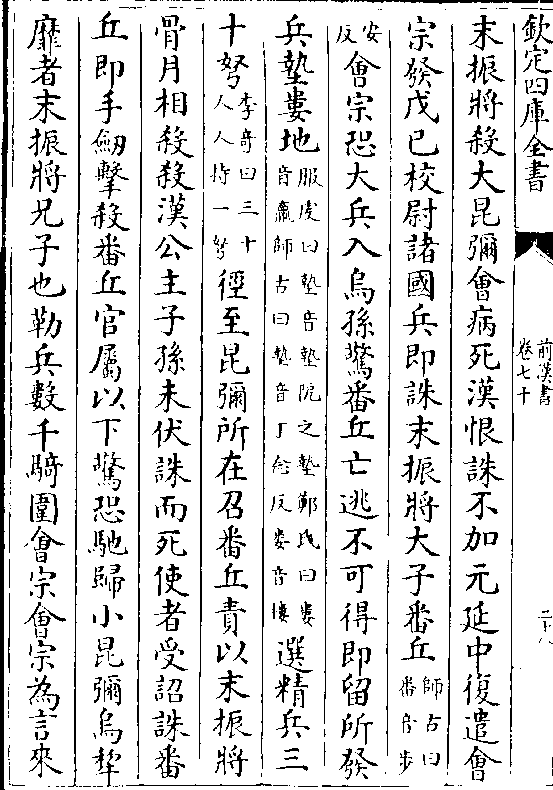 欽定四庫全書
前漢書
卷七十
二十八
末振將殺大昆彌會病死漢恨誅不加元延中復遣會
宗發戊已校尉諸國兵即誅末振將大子番丘師古曰番音步
安反會宗恐大兵入烏孫驚番丘亡逃不可得即留所發
兵墊婁地服虔曰墊音墊阸之墊鄭氏曰婁音羸師古曰墊音丁念反婁音樓選精兵三
十弩李竒曰三十人人持一弩徑至昆彌所在召番丘責以末振將
骨月相殺殺漢公主子孫未伏誅而死使者受詔誅番
丘即手劒擊殺番丘官屬以下驚恐馳歸小昆彌烏犂
靡者末振將兄子也勒兵數千騎圍會宗會宗為言來